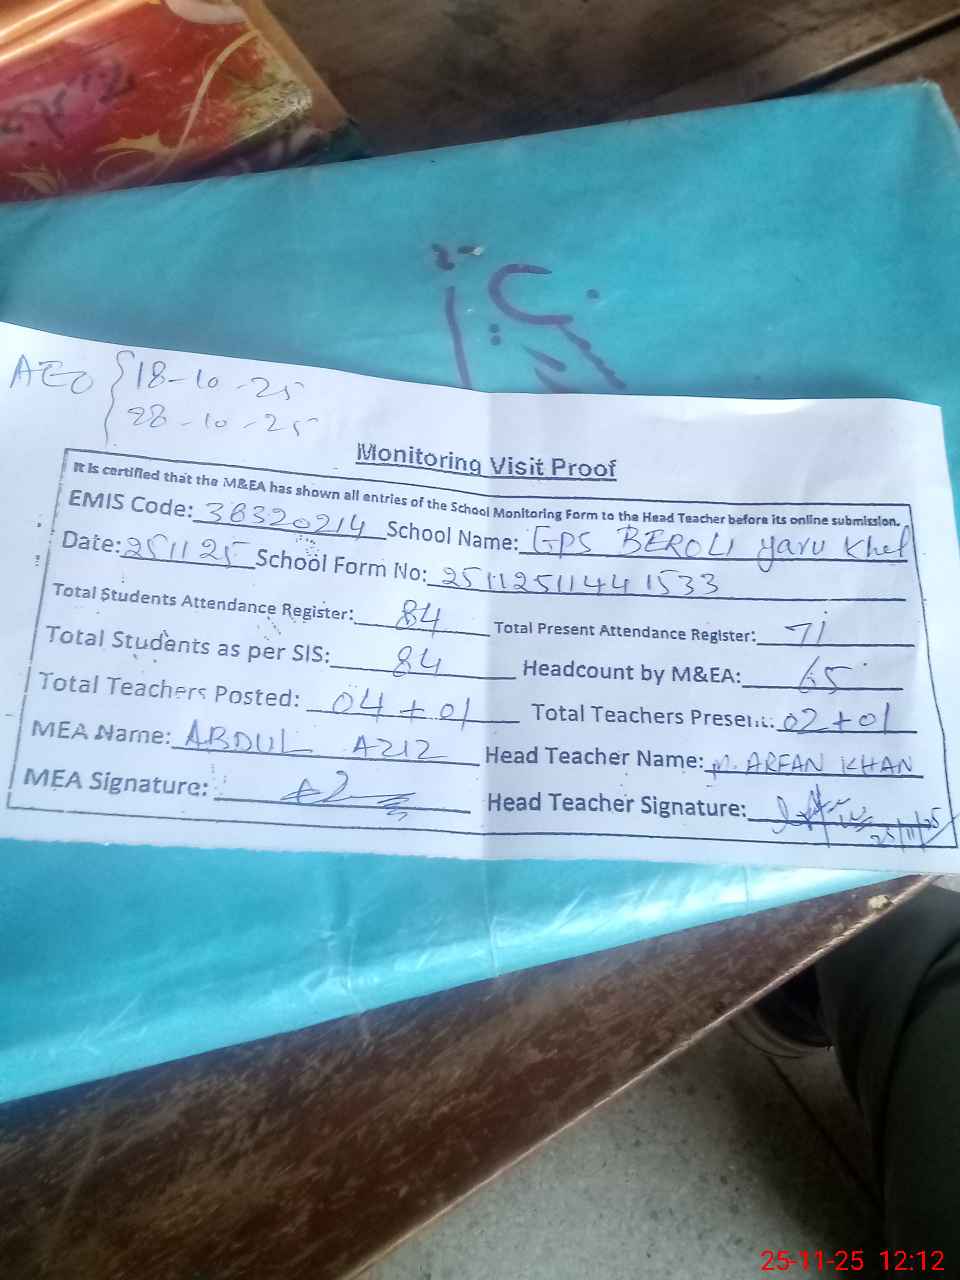 AEO { 18-10-25
28-10-25
Monitoring Visit Proof
It is certified that the M&EA has shown all entries of the School Monitoring Form to the Head Teacher before its online submission.
EMIS Code: 38320214 School Name: GPS BEROLI Yaru Khel
Date: 251125 School Form No: 25112511441533
Total Students Attendance Register: 84 Total Present Attendance Register: 71
Total Students as per SIS: 84 Headcount by M&EA: 65
Total Teachers Posted: 04+01 Total Teachers Present: 02+01
MEA Name: ABDUL AZIZ Head Teacher Name: M. ARFAN KHAN
MEA Signature: Head Teacher Signature:
25/11/25
25-11-25 12:12